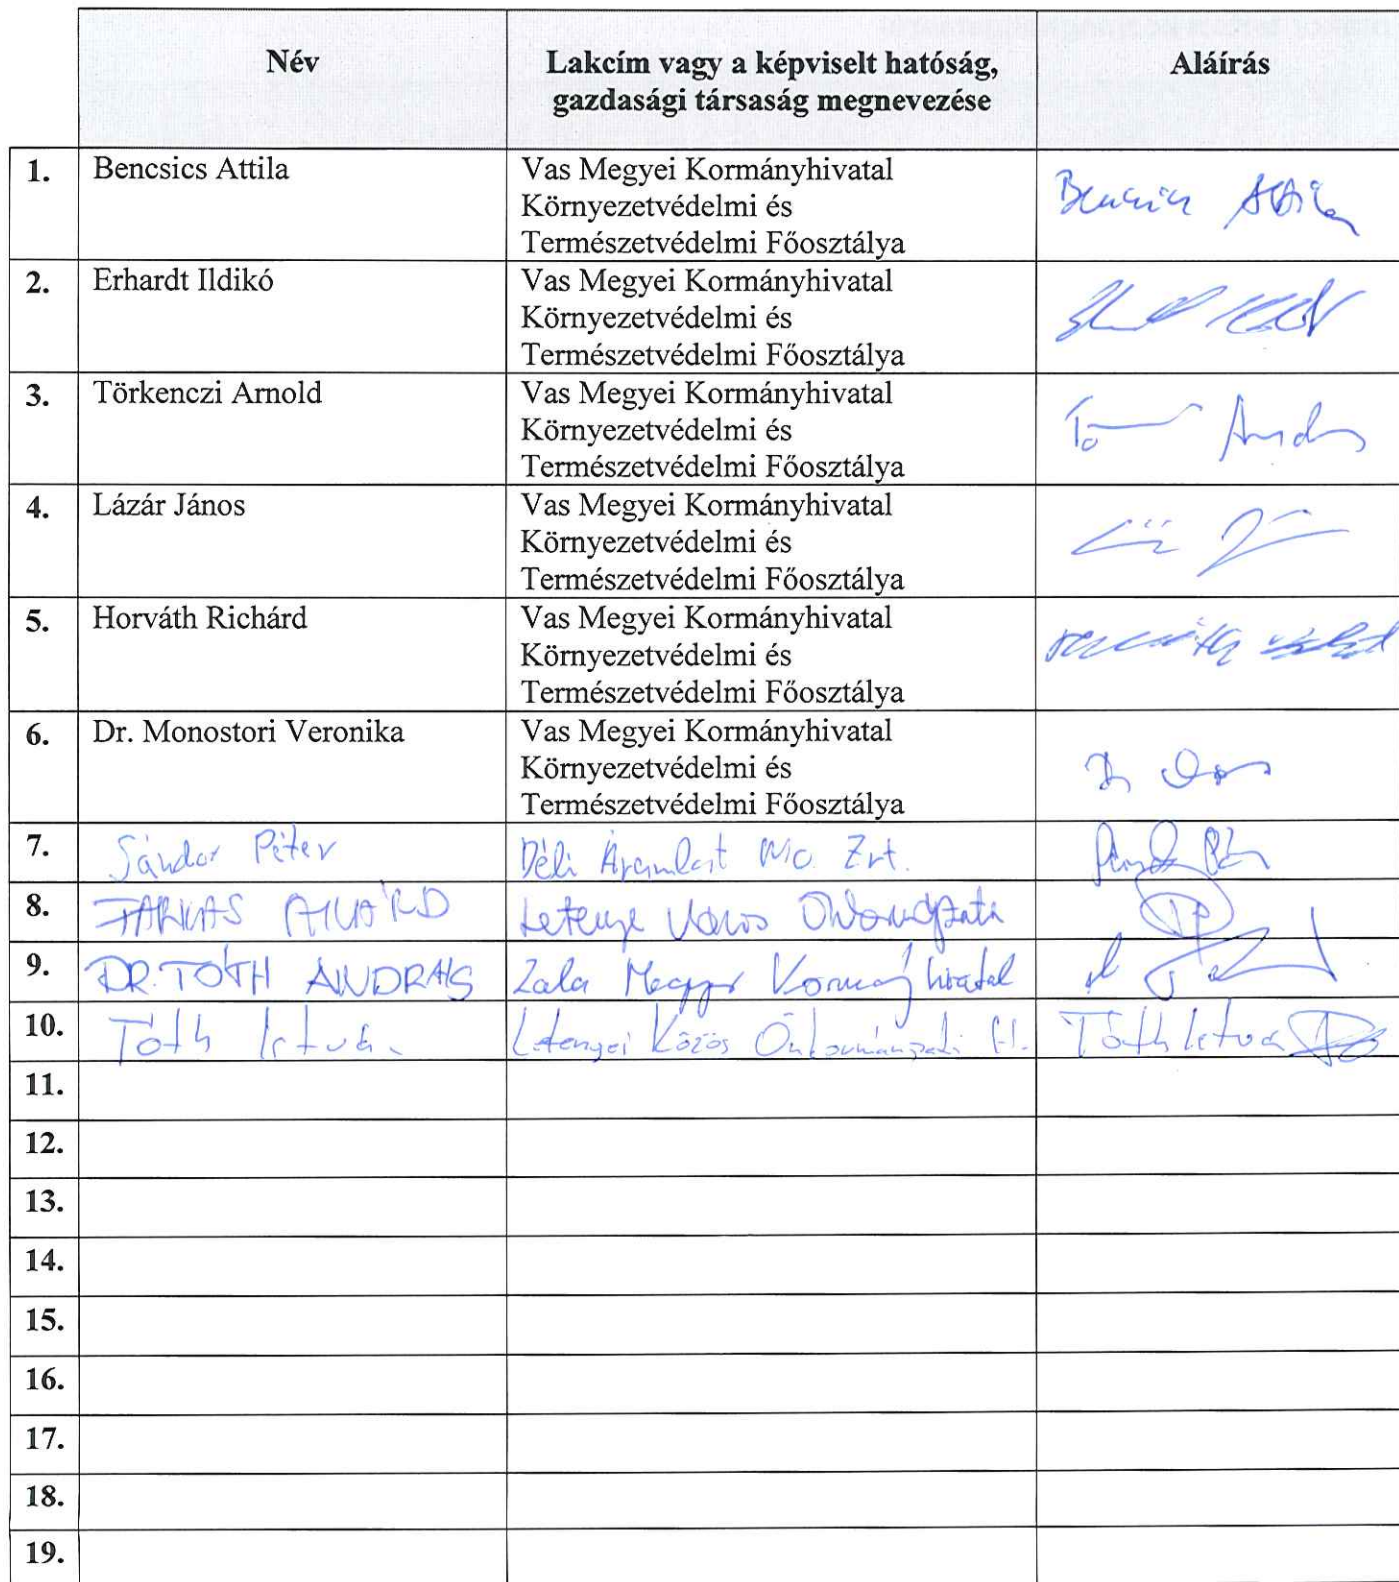 Név
Lakcím vagy a képviselt hatóság,
gazdasági társaság megnevezése
Aláírás
1.
Bencsics Attila
Vas Megyei Kormányhivatal
Környezetvédelmi és
Természetvédelmi Főosztálya
2.
Erhardt Ildikó
Vas Megyei Kormányhivatal
Környezetvédelmi és
Természetvédelmi Főosztálya
3.
Törkenczi Arnold
Vas Megyei Kormányhivatal
Környezetvédelmi és
Természetvédelmi Főosztálya
4.
Lázár János
Vas Megyei Kormányhivatal
Környezetvédelmi és
Természetvédelmi Főosztálya
5.
Horváth Richárd
Vas Megyei Kormányhivatal
Környezetvédelmi és
Természetvédelmi Főosztálya
6.
Dr. Monostori Veronika
Vas Megyei Kormányhivatal
Környezetvédelmi és
Természetvédelmi Főosztálya
7.
Sándor Péter
Déli Zrt.
8.
FARKAS
Letenye Város Önkormányzata
9.
DR. TÓTH ANDRÁS
Zala Megyei Kormányhivatal
10.
Tóth István
Letenyei Közös Önkormányzati
Tóth István
11.
12.
13.
14.
15.
16.
17.
18.
19.